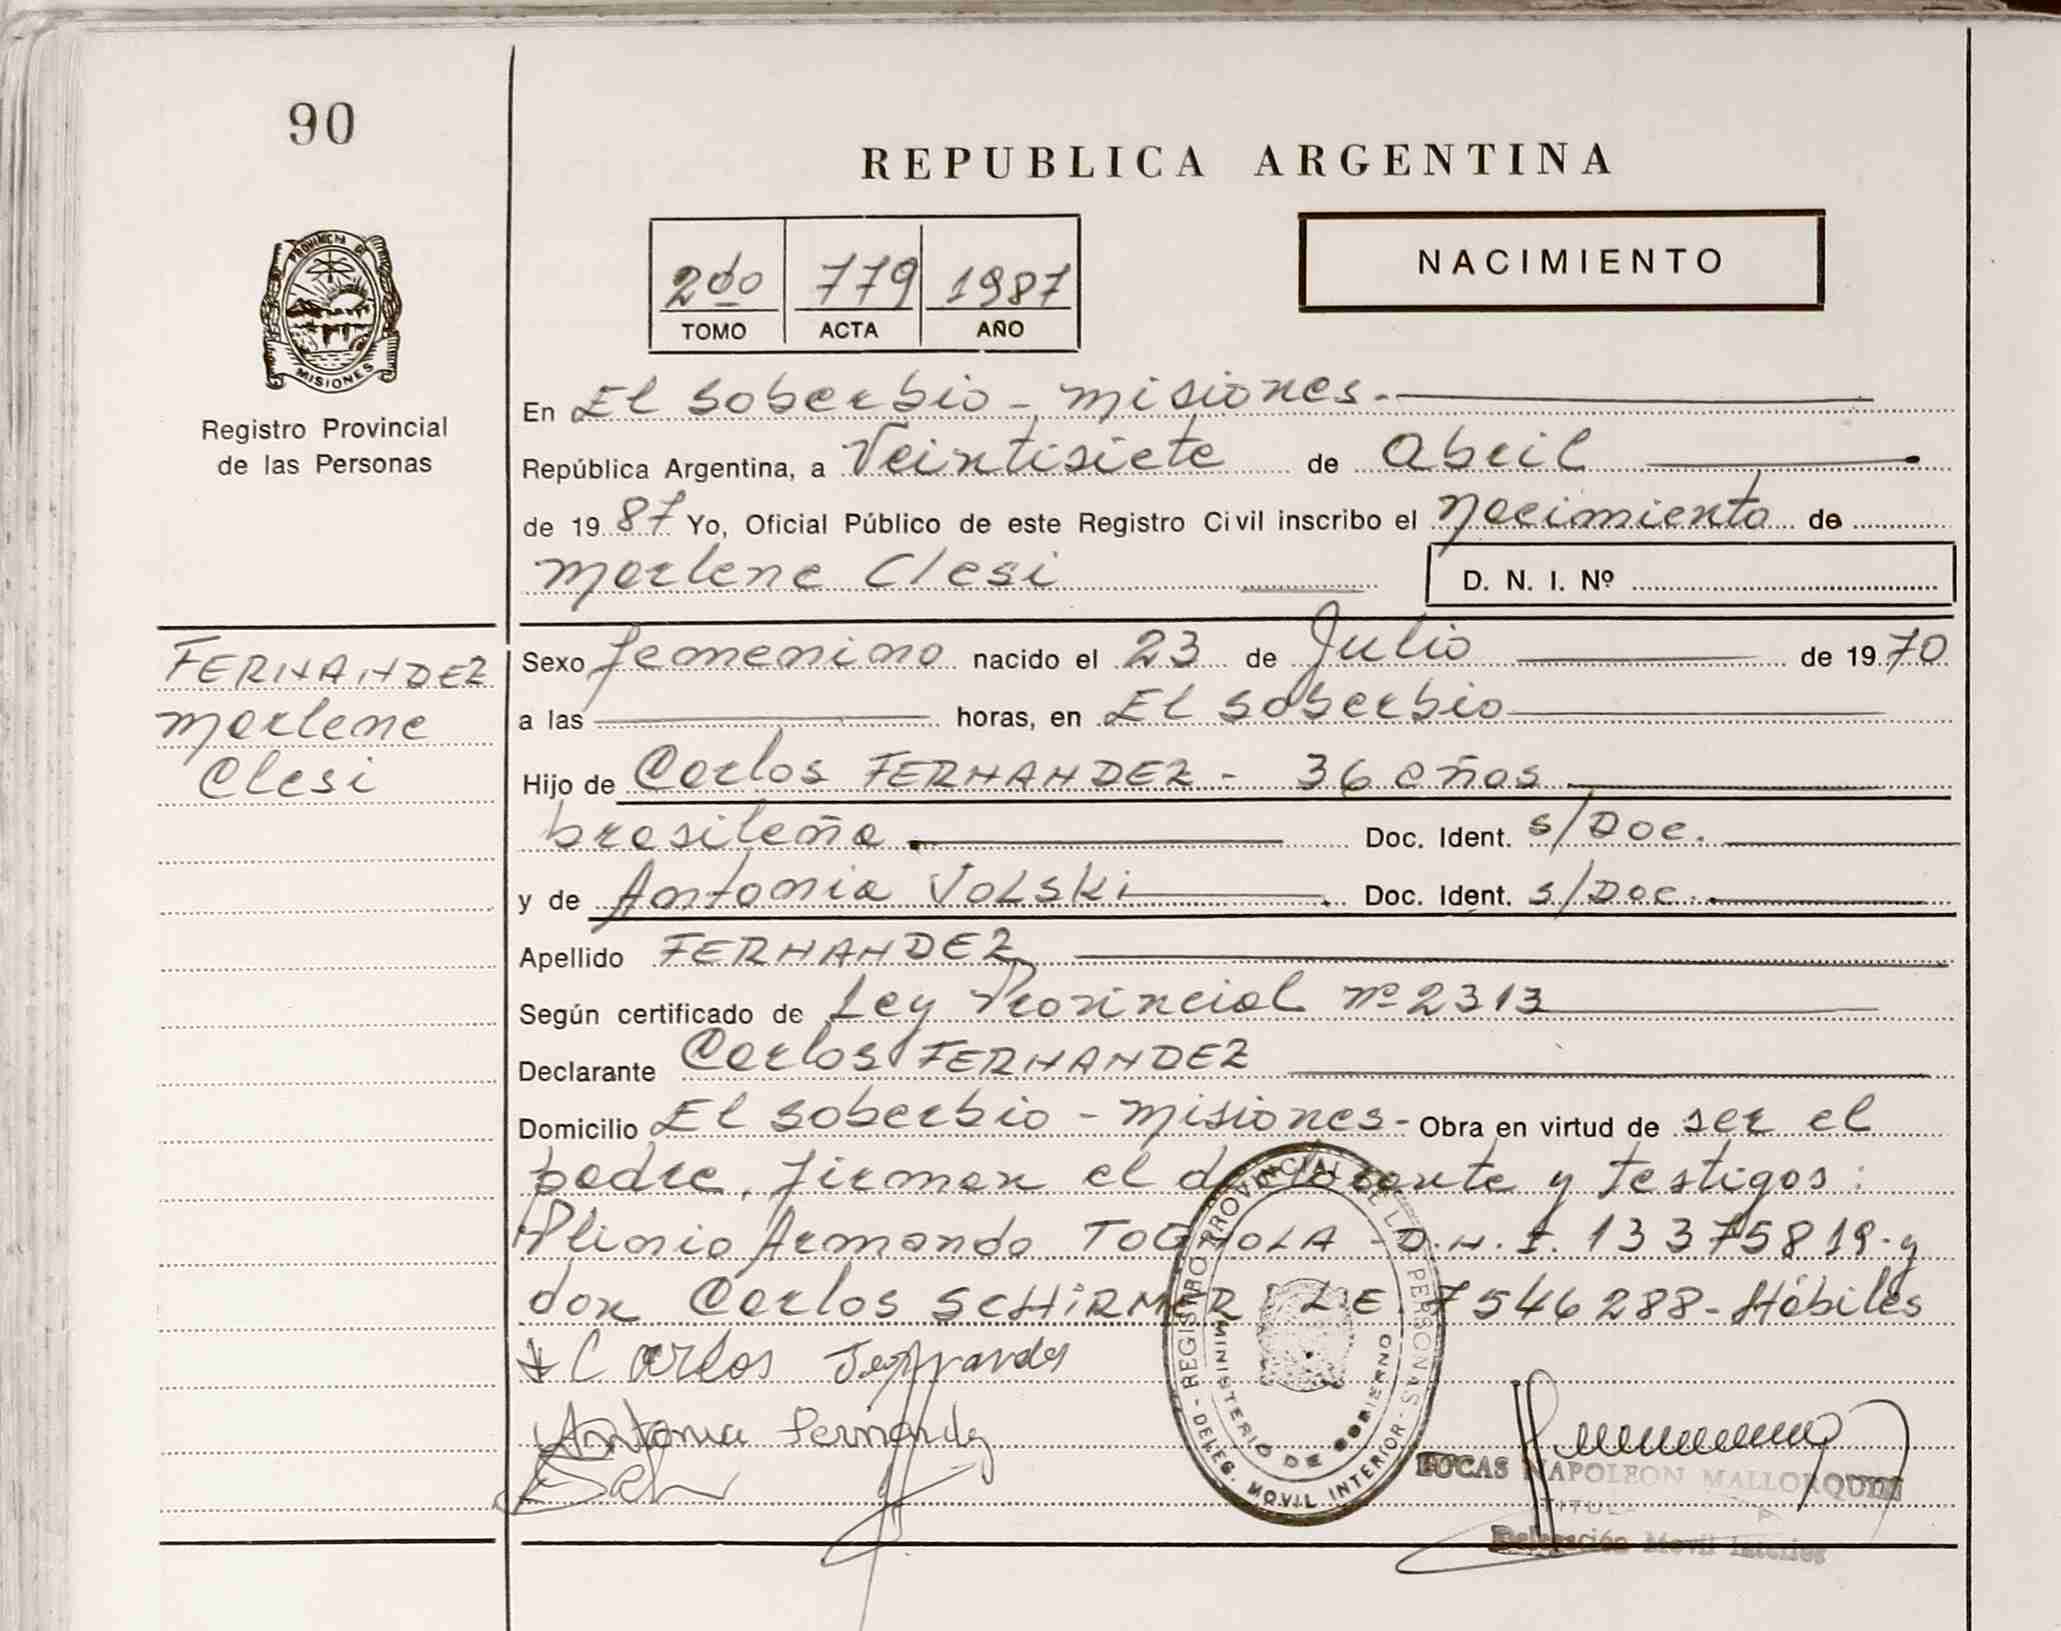 90
REPUBLICA ARGENTINA
NACIMIENTO
2do 779 1987
TOMO ACTA AÑO
PROVINCIA DE
MISIONES
Registro Provincial
de las Personas
En El Soberbio - Misiones.
República Argentina, a Veintisiete de Abril
de 1987 Yo, Oficial Público de este Registro Civil inscribo el Nacimiento de
Marlene Clesi D. N. I. Nº
FERNANDEZ
Marlene
Clesi
Sexo femenino nacido el 23 de Julio de 1970
a las horas, en El Soberbio
Hijo de Carlos FERNANDEZ - 36 años
brasileña Doc. Ident. s/Doc.
y de Antonia VOLSKi Doc. Ident. s/Doc.
Apellido FERNANDEZ
Según certificado de Ley Provincial nº 2313
Declarante Carlos FERNANDEZ
Domicilio El Soberbio - Misiones - Obra en virtud de ser el
padre, firman el declarante y testigos:
Plinio Armando TOGNOLA - D.N.I. 13375819 - y
don Carlos SCHiRMER L.E 7546288 - Hábiles
Carlos
Antonia Fernandez
REGISTRO PROVINCIAL DE LAS PERSONAS - DELEG. MOVIL INTERIOR -
MINISTERIO DE GOBIERNO
LUCAS NAPOLEON MALLORQUIN
Delegación Movil Interior